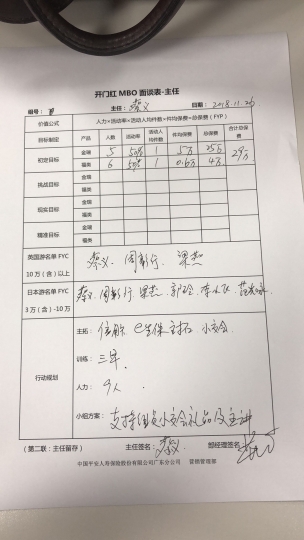 开门红 MBO 面谈表-主任
组号： 主任：蔡义 日期：2018.11.26
价值公式 人力×活动率×活动人均件数×件均保费=总保费（FYP）
目标制定 产品 人数 活动率 活动人均件数 件均保费 总保费 合计总保费
初定目标 金瑞 5 50% 1 5万 25万 29万
福类 6 50% 1 0.6万 4万
挑战目标 金瑞
福类
现实目标 金瑞
福类
精准目标 金瑞
福类
英国游名单 FYC
10 万（含）以上
蔡义、周彩行、梁燕
日本游名单 FYC
3 万（含）-10万
蔡义 周彩行、梁燕
行动规划
主拓： e生保 小交会
训练：三年、
人力：9人
小组方案：支持组员小交会礼品及主讲
（第二联：主任留存） 主任签名：蔡义 部经理签名：
中国平安人寿保险股份有限公司广东分公司 营销管理部